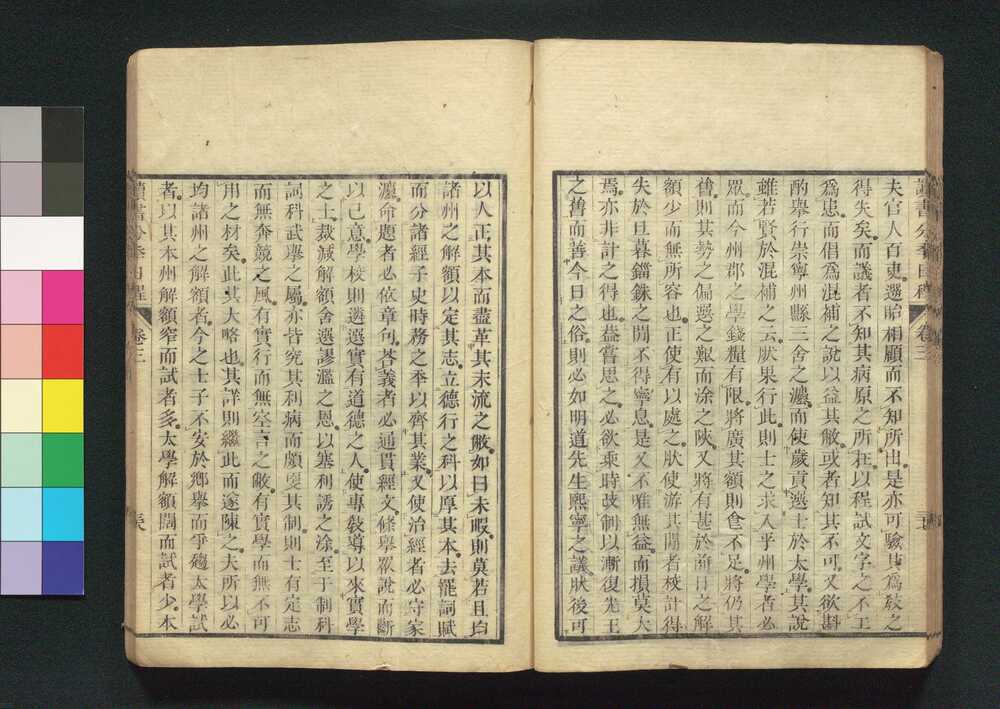 讀書分年日程 卷三
夫官人百吏遝眙相顧而不知所出是亦可驗其爲敎之
得失矣而議者不知其病原之所在以程試文字之不工
爲患而倡爲混補之說以益其敝或者知其不可又欲斟
酌舉行崇寧州縣三舍之灋而使歲貢選士於太學其說
雖若賢於混補之云肰果行此則士之求入乎州學者必
眾而今州郡之學錢糧有限將廣其額則食不足將仍其
舊則其勢之偏選之艱而涂之陜又將有甚於前日之解
額少而無所容也正使有以處之肰使游其閒者校計得
失於旦暮錙銖之閒不得寧息是又不唯無益而損莫大
焉亦非計之得也蓋嘗思之必欲乘時改制以漸復先王
之舊而善今日之俗則必如明道先生熙寧之議肰後可
以人正其本而盡革其末流之敝如曰未暇則莫若且均
諸州之解額以定其志立德行之科以厚其本去罷詞賦
而分諸經子史時務之年以齊其業又使治經者必守家
灋命題者必依章句荅義者必通貫經文條舉眾說而斷
以己意學校則遴選實有道德之人使專敎導以來實學
之士裁減解額舍選謬濫之恩以塞利誘之涂至于制科
詞科武舉之屬亦皆究其利病而頗更其制則士有定志
而無奔競之風有實行而無空言之敝有實學而無不可
用之材矣此其大略也其詳則繼此而遂陳之夫所以必
均諸州之解額者今之士子不安於鄉舉而爭趨太學試
者以其本州解額窄而試者多太學解額闊而試者少本
讀書分年日程 卷三